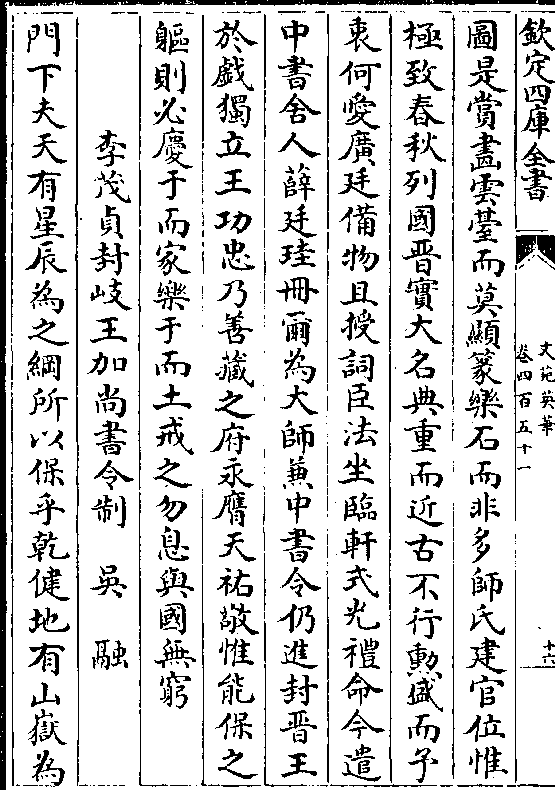 欽定四庫全書
文苑英華
卷四百五十一
十六
圖是賞畫雲臺而莫顯篆樂石而非多師氏建官位惟
極致春秋列國晋實大名典重而近古不行勲盛而予
衷何愛廣廷備物且授詞臣法坐臨軒式光禮命今遣
中書舍人薛廷珪冊爾為大師兼中書令仍進封晋王
於戲獨立王功忠乃善藏之府永膺天祐敬惟能保之
軀則必慶于而家樂于而土戒之勿息與國無窮
李茂貞封岐王加尚書令制 吳融
門下夫天有星辰為之綱所以保乎乾健地有山嶽為